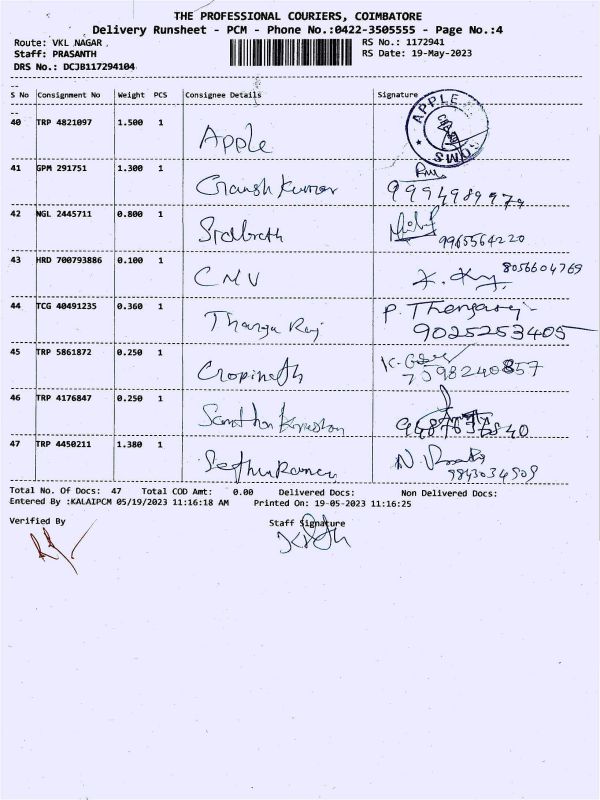 THE PROFESSIONAL COURIERS, COIMBATORE
Delivery Runsheet - PCM - Phone No.:0422-3505555 - Page No.:4
Route: VKL NAGAR . RS No.: 1172941
Staff: PRASANTH RS Date: 19-May-2023
DRS No.: DCJB117294104
S No Consignment No Weight PCS Consignee Details Signature
40 TRP 4821097 1.500 1 Apple APPLE
41 GPM 291751 1.300 1 Kumar
42 NGL 2445711 0.800 1 9965564220
43 HRD 700793886 0.100 1 CMV 8056604769
44 TCG 40491235 0.360 1 Thanga Raj P. Thangaraj
9025253405
45 TRP 5861872 0.250 1 Gopinath
7598240857
46 TRP 4176847 0.250 1
47 TRP 4450211 1.380 1 Sethu Raman
9843034909
Total No. Of Docs: 47 Total COD Amt: 0.00 Delivered Docs: Non Delivered Docs:
Entered By :KALAIPCM 05/19/2023 11:16:18 AM Printed On: 19-05-2023 11:16:25
Verified By Staff Signature